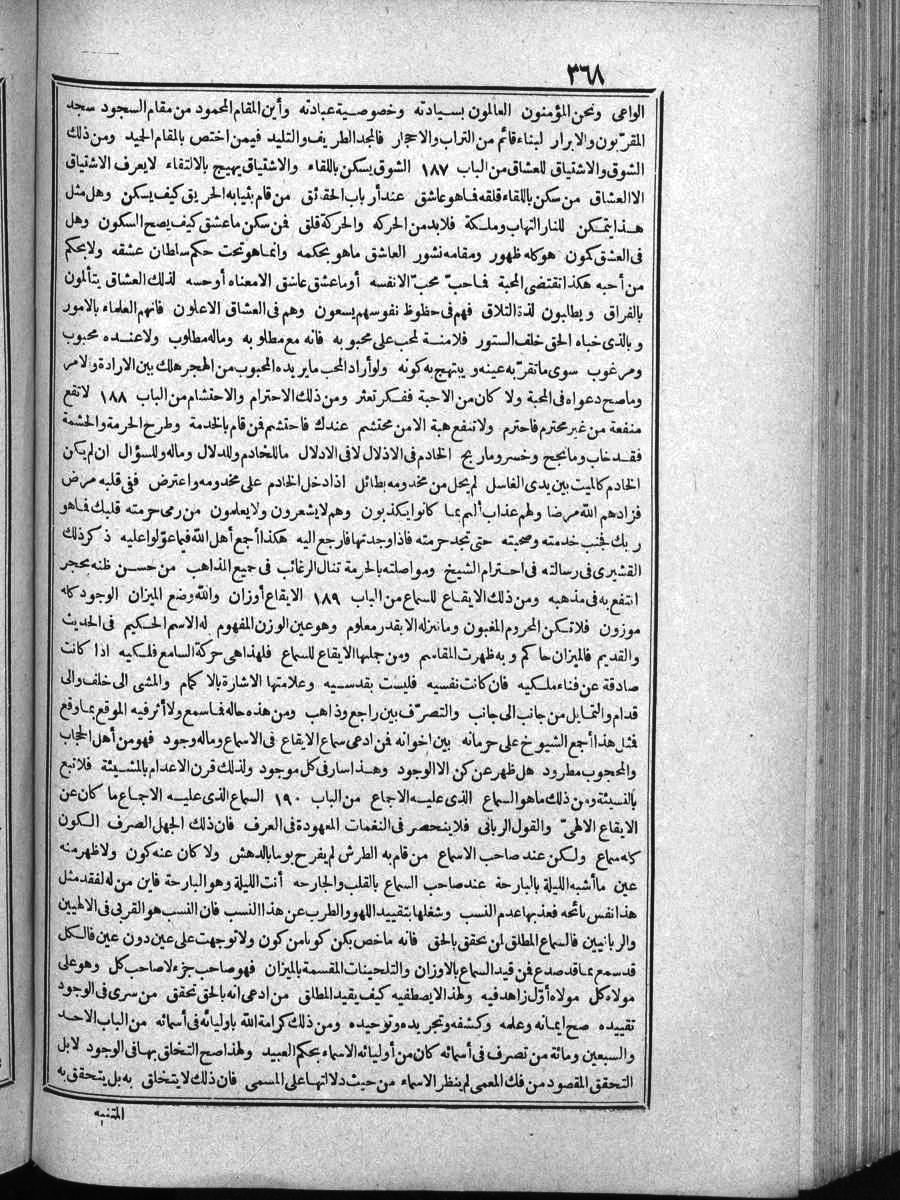 ٣٦٨
الواعى ونحن المؤمنون العالمون بسيادته وخصوصية عبادته وأين المقام المحمود من مقام السجود سجد
المقرّبون والابرار لبناء قائم من التراب والاحجار فالمجد الطريف والتليد فيمن اختص بالمقام الحيد ومن ذلك
الشوق والاشتياق للعشاق من الباب ١٨٧ الشوق يسكن باللقاء والاشتياق يهيج بالالتقاء لا يعرف الاشتياق
الا العشاق من سكن باللقاء قلقه فما هو عاشق عند أرباب الحقائق من قام بثيابه الحريق كيف يسكن وهل مثل
هذا يتمكن للنار التهاب وملكة فلا بد من الحركه والحركة قلق فمن سكن ما عشق كيف يصح السكون وهل
فى العشق كمون هو كله ظهور ومقامه نشور العاشق ما هو بحكمه وانما هو تحت حكم سلطان عشقه ولا بحكم
من أحبه هكذا تقتضى المحبة فما حبّ محبّ الا نفسه أو ما عشق عاشق الا معناه أو حسه لذلك العشاق يتألمون
بالفراق ويطلبون لذة التلاق فهم فى حظوظ نفوسهم يسعون وهم فى العشاق الاعلون فانهم العلماء بالامور
وبالذى خباه الحق خلف الستور فلا منة لمحب على محبوبه فانه مع مطلوبه وما له مطلوب ولا عنده محبوب
ومرغوب سوى ما تقرّ به عينه ويبتهج به كونه ولو أراد المحب ما يريده المحبوب من الهجر هلك بين الارادة والامر
وما صح دعواه فى المحبة ولا كان من الاحبة ففكر تعثر ومن ذلك الاحترام والاحتشام من الباب ١٨٨ لا تقع
منفعة من غير محترم فاحترم ولا تنفع هبة الا من محتشم عندك فاحتشم فمن قام بالخدمة وطرح الحرمة والحشمة
فقد خاب وما نجح وخسر وما ربح الخادم فى الاذلال لا فى الادلال ما للخادم وللدلال وماله وللسؤال ان لم يكن
الخادم كالميت بين يدى الغاسل لم يحل من مخدومه بطائل اذا دخل الخادم على مخدومه واعترض ففى قلبه مرض
فزادهم الله مرضا ولهم عذاب أليم بما كانوا يكذبون وهم لا يشعرون ولا يعلمون من رمى حرمته قلبك فما هو
ربك فجنب خدمته وصحبته حتى تجد حرمته فاذا وجدتها فارجع اليه هكذا أجمع أهل الله فيما عوّلوا عليه ذكر ذلك
القشيرى فى رسالته فى احترام الشيخ ومواصلته بالحرمة تنال الرغائب فى جميع المذاهب من حسن ظنه بحجر
انتفع به فى مذهبه ومن ذلك الايقاع للسماع من الباب ١٨٩ الايقاع أوزان والله وضع الميزان الوجود كله
موزون فلا تكن المحروم المغبون وما ننزله الا بقدر معلوم وهو عين الوزن المفهوم له الاسم الحكيم فى الحديث
والقديم فالميزان حاكم وبه ظهرت المقاسم ومن جملتها الايقاع للسماع فلهذا هى حركة السامع فلكيه اذا كانت
صادقة عن فناء ملكيه فان كانت نفسيه فليست بقدسيه وعلامتها الاشارة بالاكمام والمشى الى خلف والى
قدام والتمايل من جانب الى جانب والتصرّف بين راجع وذاهب ومن هذه حاله فما سمع ولا أثر فيه الموقع بما وقع
فمثل هذا أجمع الشيوخ على حرمانه بين اخوانه فمن ادعى سماع الايقاع فى الاسماع وماله وجود فهو من أهل الحجاب
والمحجوب مطرود هل ظهر عن كن الا الوجود وهذا سار فى كل موجود ولذلك قرن الاعدام بالمشيئة فلا تبع
بالنسيئة ومن ذلك ما هو السماع الذى عليه الاجماع من الباب ١٩٠ السماع الذى عليه الاجماع ما كان عن
الايقاع الالهىّ والقول الربانى فلا ينحصر فى النغمات المعهودة فى العرف فان ذلك الجهل الصرف الكون
كله سماع ولكن عند صاحب الاسماع من قام به الطرش لم يفرح يوما بالدهش ولا كان عنه كون ولا ظهر منه
عين ما أشبه الليلة بالبارحة عند صاحب السماع بالقلب والجارحه أنت الليلة وهو البارحة فاين من له لفقد مثل
هذا نفس نائحه فعذبها عدم النسب وشغلها بتقييد اللهو والطرب عن هذا النسب فان النسب هو القربى فى الالهيين
والربانيين فالسماع المطلق لمن تحقق بالحق فانه ما خص بكن كونا من كون ولا توجهت على عين دون عين فالكل
قد سمع بما قد صدع فمن قيد السماع بالاوزان والتلحينات المقسمة بالميزان فهو صاحب جزء لا صاحب كل وهو على
مولاه كل مولاه أوّل زاهد فيه ولهذا لا يصطفيه كيف يقيد المطلق من ادعى انه بالحق تحقق من سرى فى الوجود
تقييده صح ايمانه وعلمه وكشفه وتجريده وتوحيده ومن ذلك كرامة الله باوليائه فى أسمائه من الباب الاحد
والسبعين ومائة من تصرف فى أسمائه كان من أوليائه الاسماء بحكم العبيد ولهذا صح التخلق بها فى الوجود لا بل
التحقق المقصود من فك المعمى لم ينظر الاسماء من حيث دلالتها على المسمى فان ذلك لا يتخلق به بل يتحقق به
المتنبه